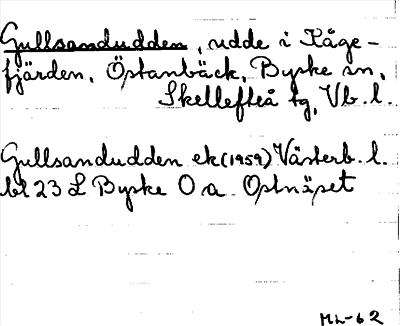 Gullsandudden, udde i Kåge-
fjärden, Östanbäck, Byske sn,
Skellefteå tg, Vb. l.
Gullsandudden ek (1959) Västerb. l.
bl 23 L Byske O a. Ostnäset
ML-62